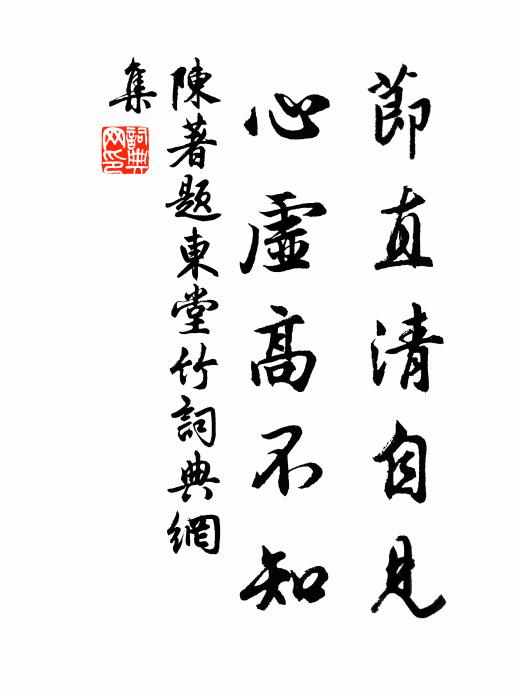 節直清自見
心虛高不知
陳著題東堂竹詞典網
集
詞典
网印